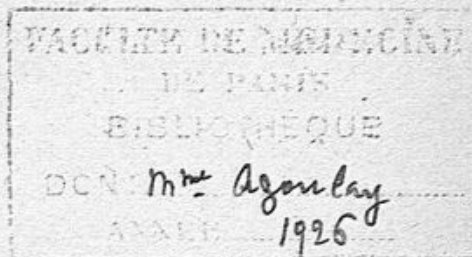 FACULTÉ DE MÉDECINE
DE PARIS
BIBLIOTHÈQUE
DON: Mme Azoulay
ANNÉE 1926